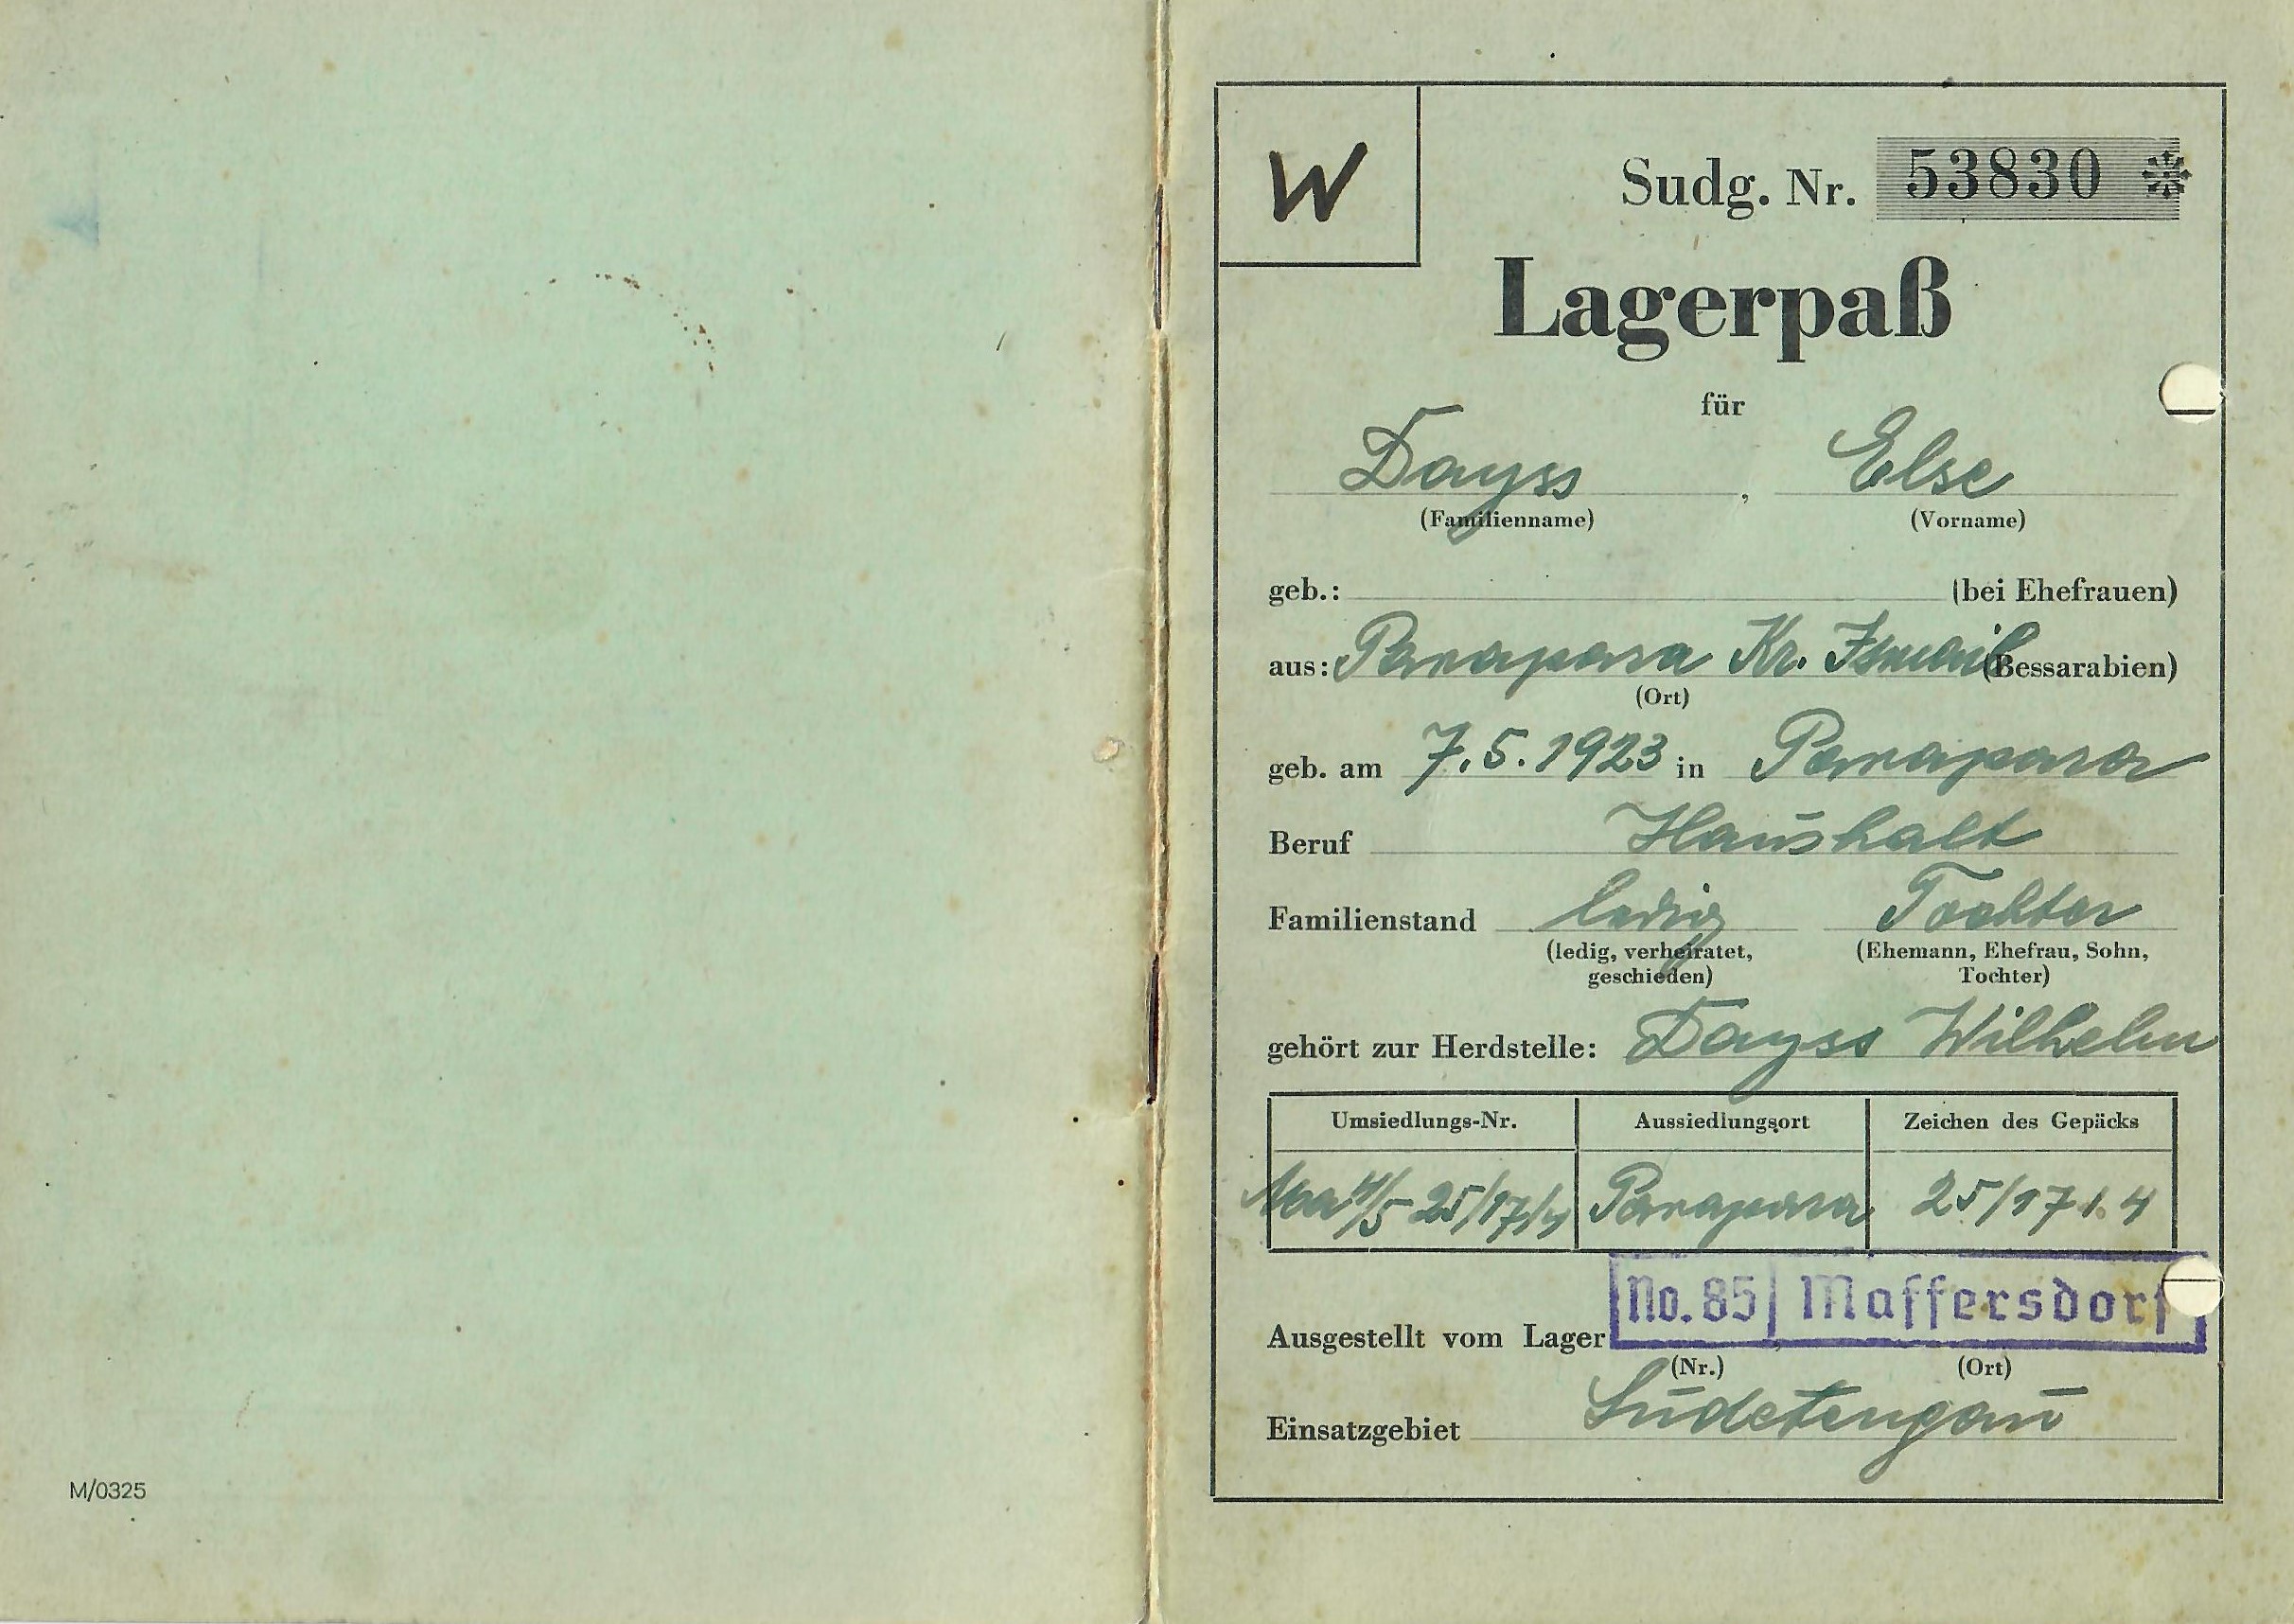 W
Sudg. Nr. 53830 *
Lagerpaß
für
Dayss , Else
(Familienname) (Vorname)
geb.: (bei Ehefrauen)
aus: Parapara Kr. Ismail (Bessarabien)
(Ort)
geb. am 7.5.1923 in Parapara
Beruf Haushalt
Familienstand ledig Tochter
(ledig, verheiratet, geschieden) (Ehemann, Ehefrau, Sohn, Tochter)
gehört zur Herdstelle: Dayss Wilhelm
Umsiedlungs-Nr. Aussiedlungsort Zeichen des Gepäcks
4/5 25/17/4 Parapara 25/17/.4
Ausgestellt vom Lager No. 85 Maffersdorf
(Nr.) (Ort)
Einsatzgebiet Sudetengau
M/0325